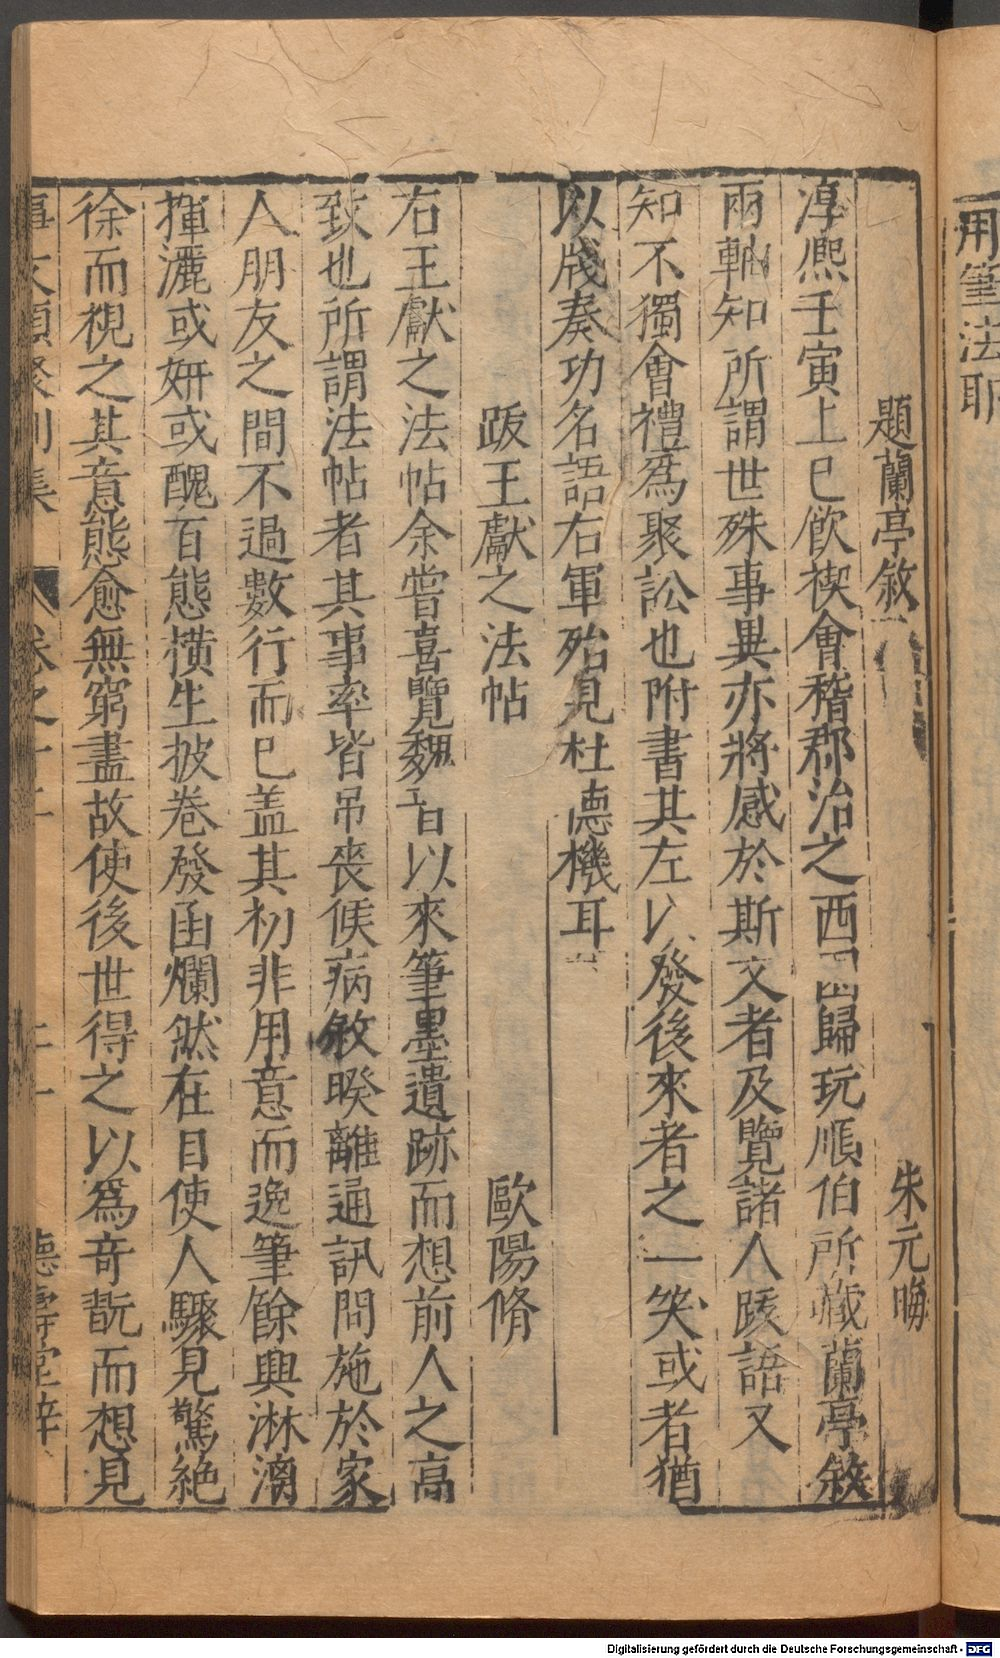 用筆法耶
題蘭亭敘 朱元晦
淳熈壬寅上巳飲禊會稽郡治之西園歸玩順伯所藏蘭亭敘
兩軸知所謂世殊事異亦將感於斯文者及覽諸人跋語又
知不獨會禮爲聚訟也附書其左以發後來者之一笑或者猶
以牋奏功名語右軍殆見杜德機耳
跋王獻之法帖 歐陽脩
右王獻之法帖余嘗喜覽魏晉以來筆墨遺跡而想前人之高
致也所謂法帖者其事率皆吊喪候病敘暌離通訊問施於家
人朋友之間不過數行而已盖其初非用意而逸筆餘興淋漓
揮灑或姸或醜百態橫生披卷發函爛然在目使人驟見驚絶
徐而視之其意態愈無窮盡故使後世得之以爲奇翫而想見
事文類聚別集 卷之十二 十一 德壽堂梓